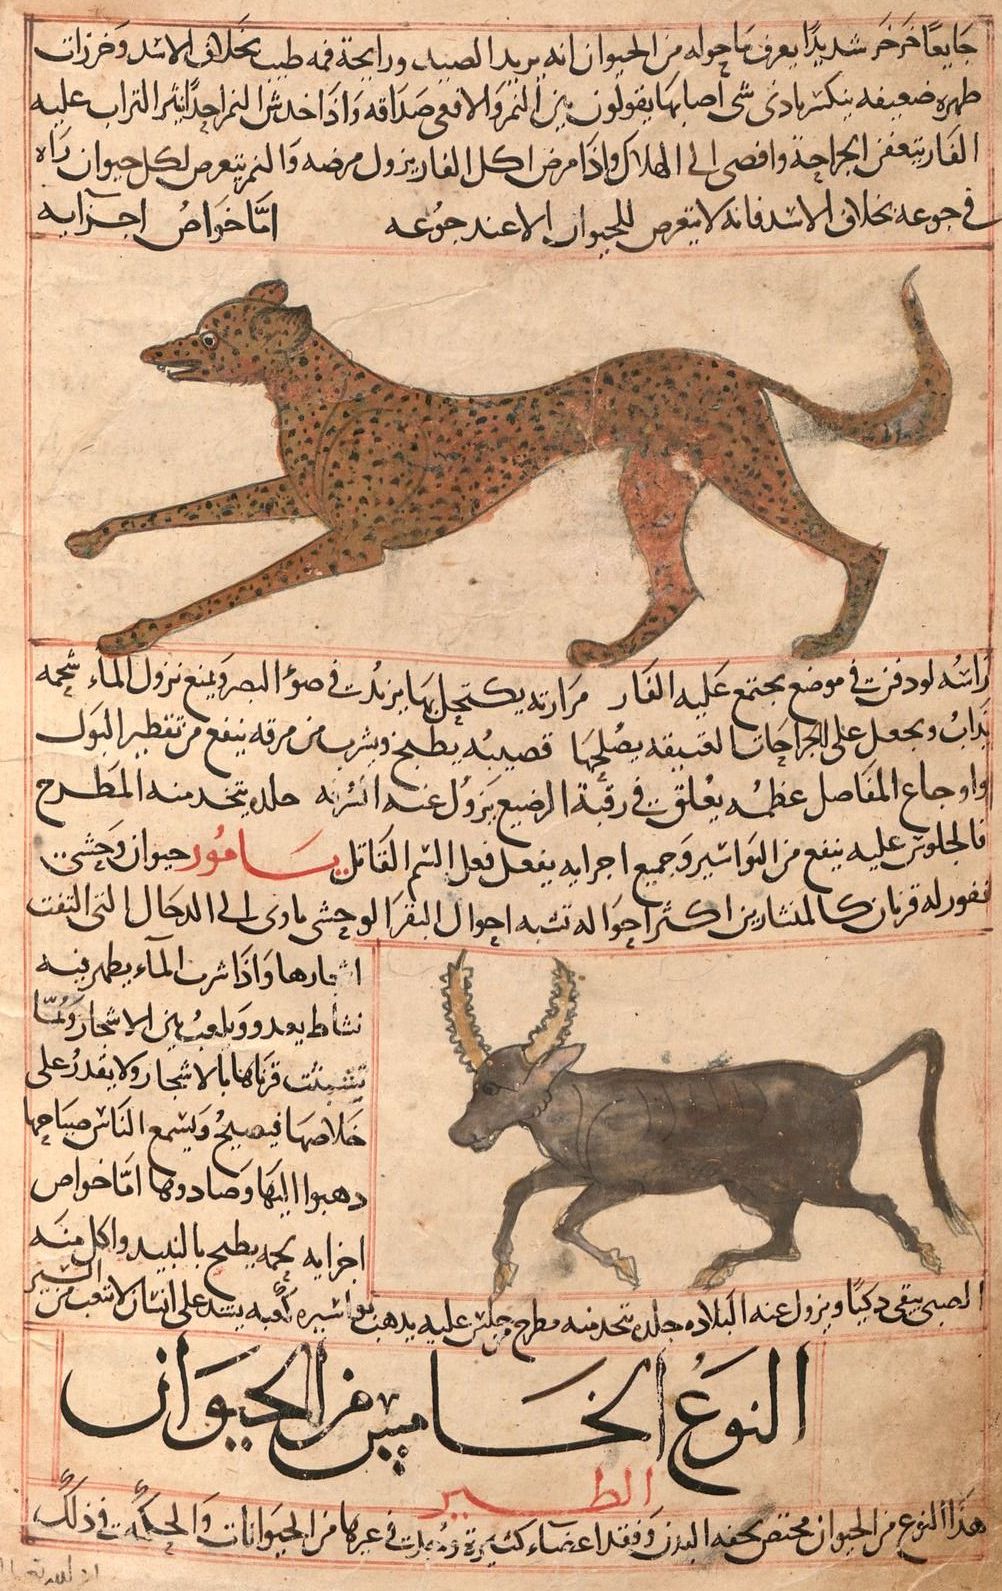 جايعا خرخر شديدا يعرف ما حوله من الحيوان انه يريد الصيد ورايحة فمه طيب بخلاف الاسد وخرزات
ظهره ضعيفه ينكسر بادنى شى اصابها يقولون بين النمر والافعى صداقه واذا خدش النمر احدا ينثر التراب عليه
الفار يتعفن الجراحة وافضى الى الهلاك واذا مرض اكل الفار يزول مرضه والنمر يتعرض لكل حيوان راه
فى جوعه بخلاف الاسد فانه لا يتعرض للحيوان الا عند جوعه اما خواص اجزايه
راسه لو دفنت فى موضع يجتمع عليه الفار مرارته يكتحل بها يزيد فى ضوء البصر ويمنع نزول الماء شحمه
يذاب ويجعل على الجراحات العتيقه يصلحها قضيبه يطبخ ويشرب من مرقه ينفع من تقطير البول
واوجاع المفاصل عظمه يعلق فى رقبة الرضيع يزول عنه جلده يتخذ منه المطرح
فالجلوس عليه ينفع من البواسير وجميع اجزايه يفعل فعل السم القاتل يامور حيوان وحشى
نفور له قرنان كالمنشارين اكثر احواله تشبه احوال البقر الوحشى ياوى الى الدحال التى التفت
اشجارها واذا شرب الماء يظهر فيه
نشاط يعدو ويلعب بين الاشجار ولما
تشبثت قرناها بالاشجار ولا يقدر على
خلاصها فيصيح ويسمع الناس صياحها
ذهبوا اليها وصادوها اما خواص
اجزايه لحمه يطبخ بالنبيذ واكل منه
الصبى يبقى ذكيا ويزول عنه البلاده جلده يتخذ منه مطرح ومن جلس عليه يذهب بواسيره كعبه يشد على انسان لا يتعب من السير
النوع الخامس من الحيوان
الطير
هذا النوع من الحيوان مختص بخفه البدن وفقد اعضاء كثيرة وجدت فى غيرها من الحيوانات والحكمة فى ذلك